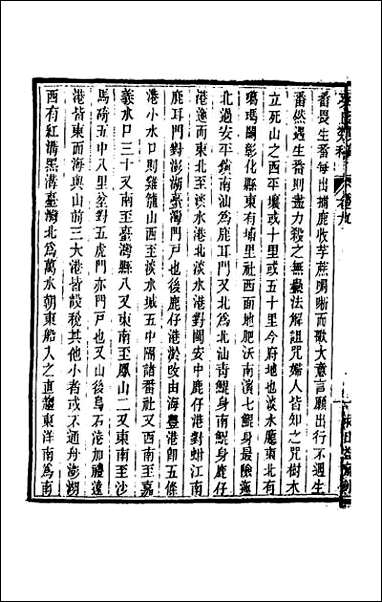 番畏生番每出捕鹿收芋蔗鳴啣而歌大意言願出行不遇生
番然遇生番則盡力殺之無巫法解詛咒婦人皆知之咒樹木
立死山之西平壤或十里或五十里今府地也淡水廳東北有
噶瑪闌彰化縣東有埔里社西面地肥沃南濱七鯤身最險海
北過安平鎮南汕為鹿耳門又北為北汕青鯤身南鯤身鹿仔
港迤而東北至淡水港北淡水港對閩安中鹿仔港對蚶江南
鹿耳門對澎湖臺灣門戶也後鹿仔港淤改由海豐港卽五條
港小水口則雞籠山西至淡水城五中隔諸番社又西南至嘉
義水口三十又南至臺灣縣八又東南至鳳山二又東南至沙
馬碕五中八里坌對五虎門亦門戶也又山後烏石港加禮遠
港皆東而海與山前三大港皆設稅其他小者或不通舟澎湖
西有紅溝黑溝臺灣北為萬水朝東船入之直趨東洋南為南